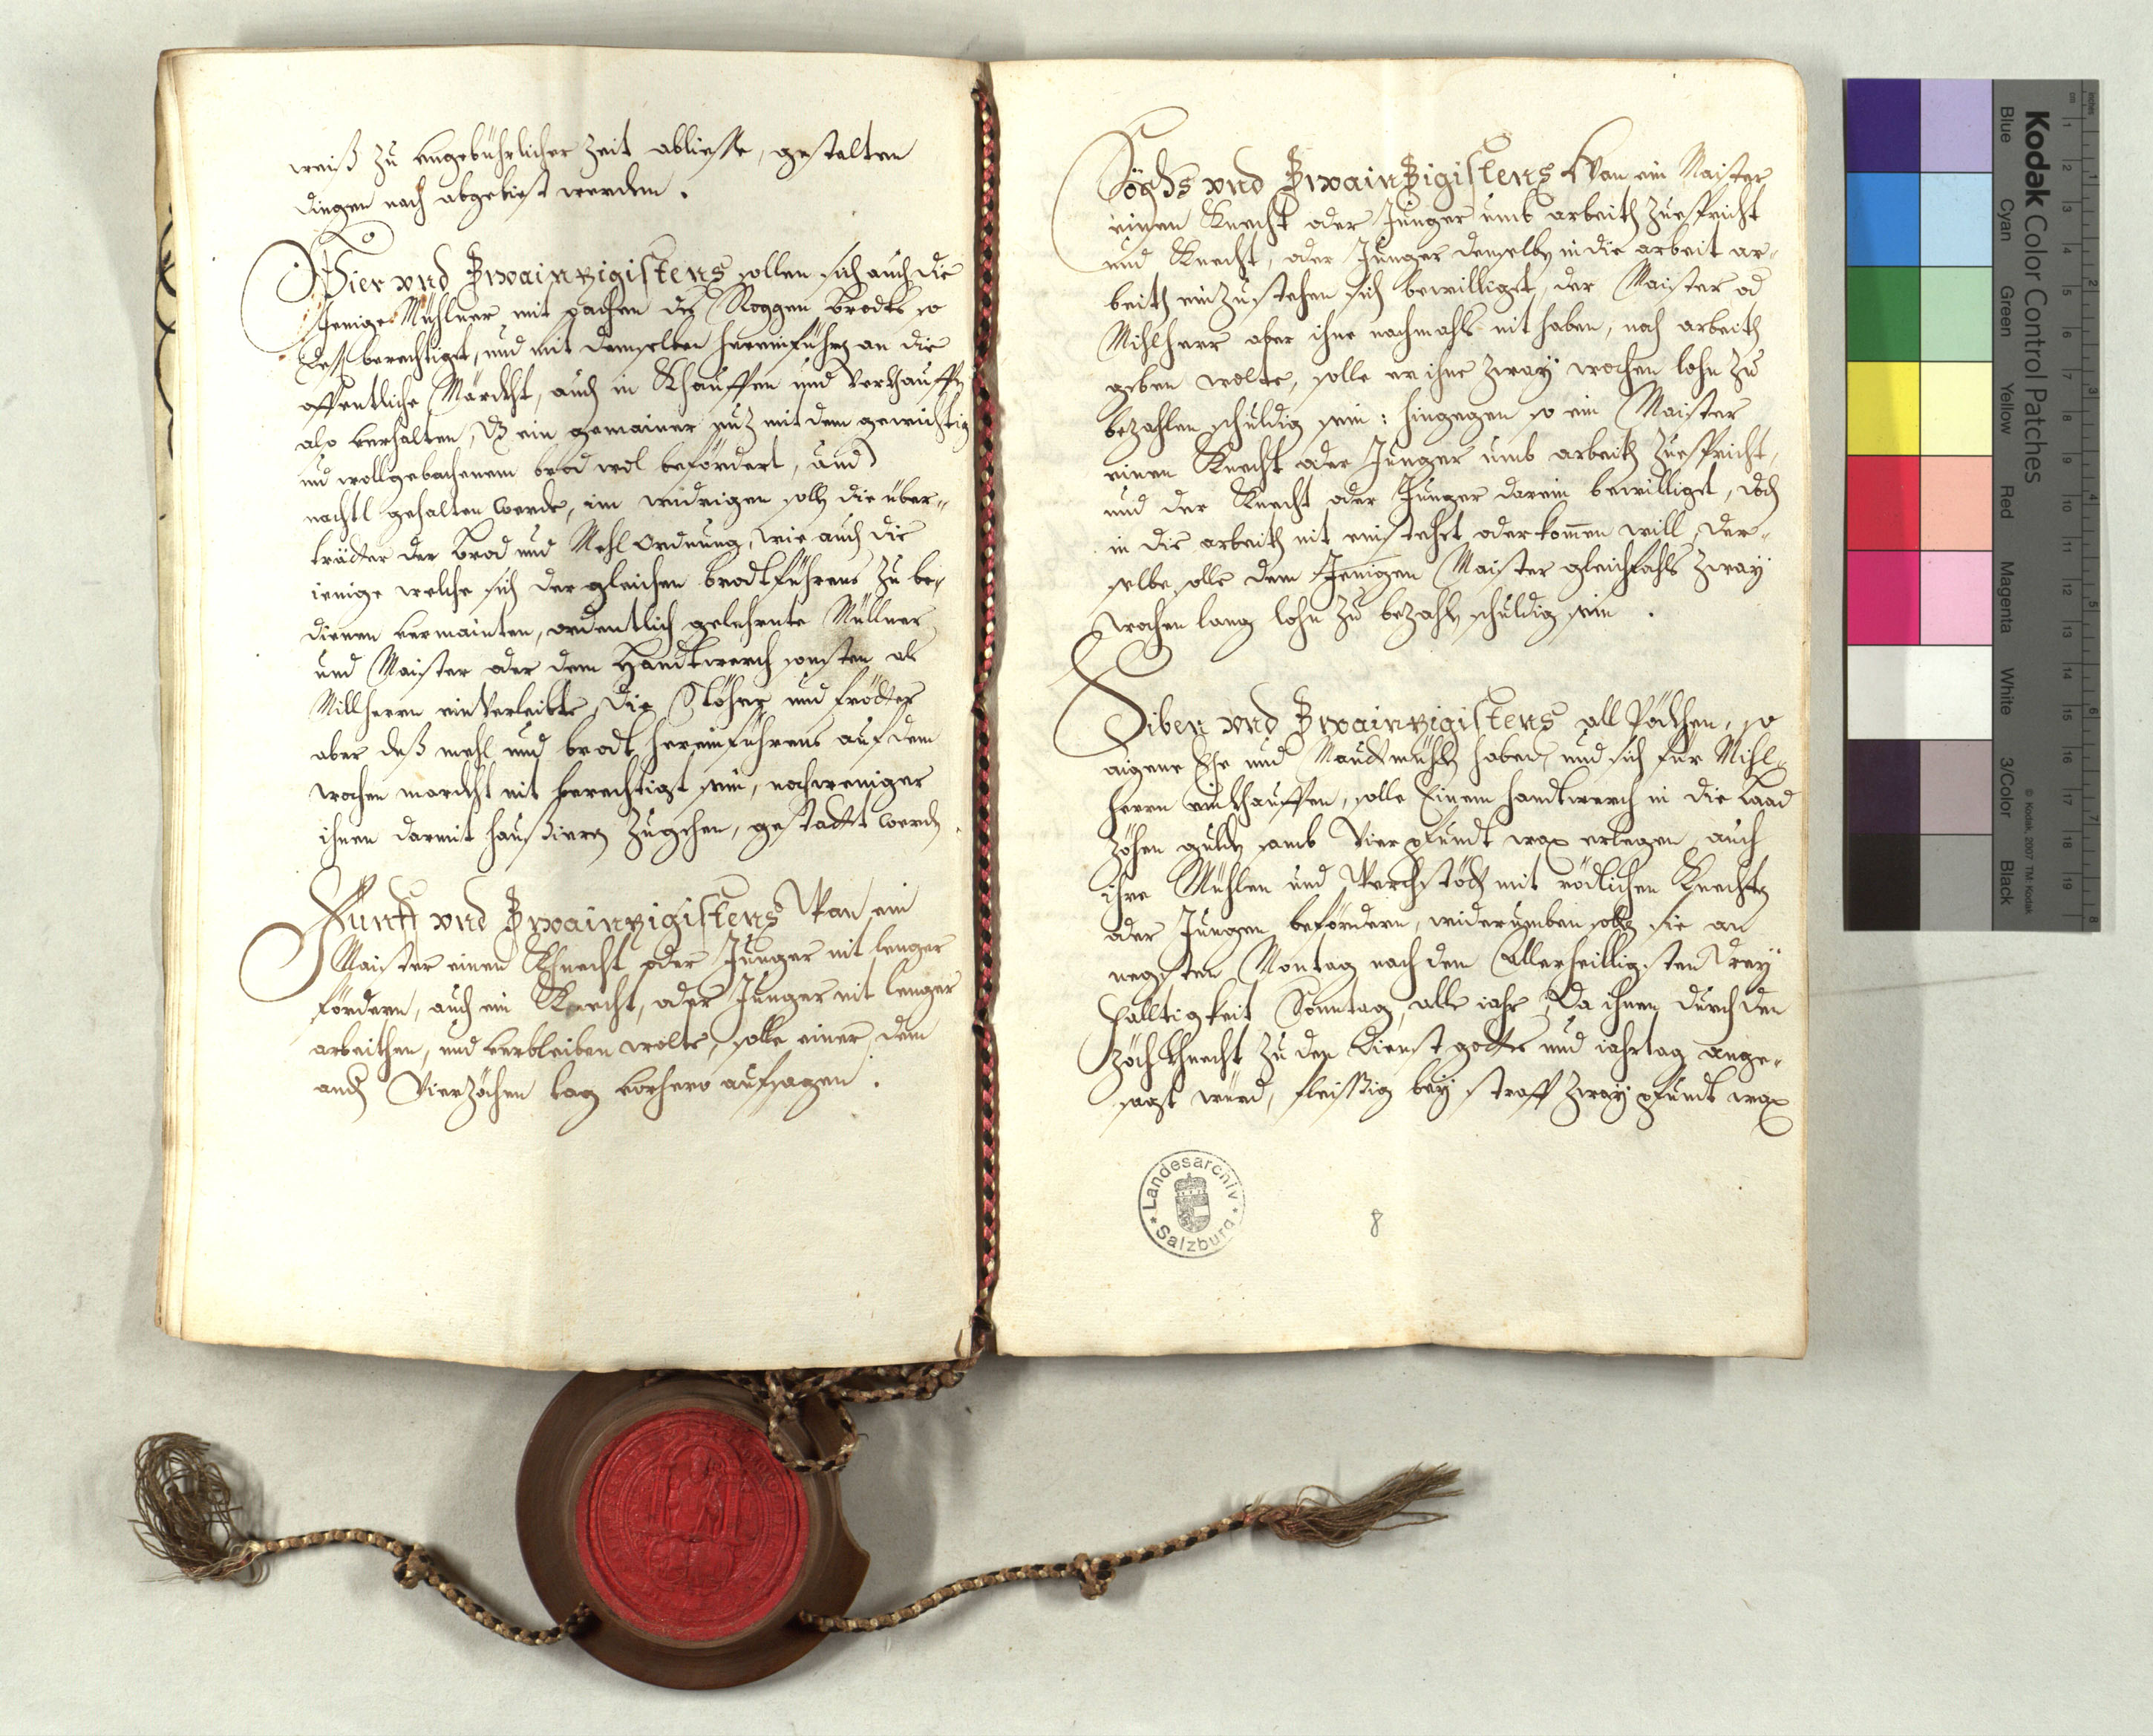 weiß zu ungebührlicher Zeit abliesse, gestalten
dingen nach abgebiest werden.
Vier vnd Zwainzigistens sollen sich auch die
Jenige Mühlner mit pachen des Roggen brodts so
dess berechtiget, und mit demselben hereinführen an die
offentliche Märckht, auch in Khauffen und Verkhauffen
also verhalten, dz ein gemainer nuz mit dem gewichtig
und wollgebachenem brod wol befördert, und
nachtl gehalten werde, im widrigen solle die über-
trädter der Brod und Mehl Ordnung, wie auch die
ienige welche sich der gleichen brodtführens zu be-
dienen vermainten, ordentlich gelehrnte Müllner
und Maister oder dem Handtwerch sonsten als
Millherrn einverleibte, die Stöhrer und frödter
aber deß mehl und brodt hereinführens auf dem
wochen marckht nit berechtigt sein, noch weniger
ihnen darmit haußieren zugehen, gestattet werden.
Fünff vnd Zwainzigistens Wan ein
Maister einen Khnecht oder Junger nit lenger
fördern, auch ein Knecht, oder Junger nit lenger
arbeithen, und verbleiben wolte, solle einer dem
andern Vierzöchen tag vorhero aufsagen.
Söchs vnd Zwainzigistens Wan ein Maister
einen Knecht oder Junger umb arbeith zuespricht
und Knecht, oder Junger demselben in die arbeit ar-
beith einzustehen sich bewilliget, der Maister od
Mihlherr aber ihne nachmahls nit haben, noch arbeith
geben wolte, solle er ihne zway wochen lohn zu
bezahlen schuldig sein: hingegen so ein Maister
einen Knecht oder Junger umb arbeith zuespricht,
und der Knecht oder Junger darein bewilliget, doch
in die arbeith nit einstehet oder kommen will, der-
selbe solle dem Jenigen Maister gleichfahls zway
wochen lang lohn zu bezahlen schuldig sein.
Siben vnd Zwainzigistens all Pöckhen, so
aigene Ehe und Mauthmühlen haben, und sich für Mihl-
herrn einkhauffen, solle Einem handtwerch in die Laad
zöhen gulden samb Vier pfundt wax erlegen, auch
ihre Mühlen und Werchstött mit rödlichen Knechten
oder Jungen befördern, widerumben sollen sie an
negsten Montag nach den Allerheilligsten drey
falltigkeit Sonntag, alle iahr, Da ihnen durch den
Zöchkhnecht zu den dienst gottes und iahrtag ange-
sagt würd, fleissig bey straff zway pfundt wax
Landesarchiv
Salzburg
8
Kodak Color Control Patches
Blue Cyan Green Yellow Red Magenta White 3/Color Black
© Kodak, 2007 TM: Kodak
inches 1 2 3 4 5 6 7 8
cm 1 2 3 4 5 6 7 8 9 10 11 12 13 14 15 16 17 18 19